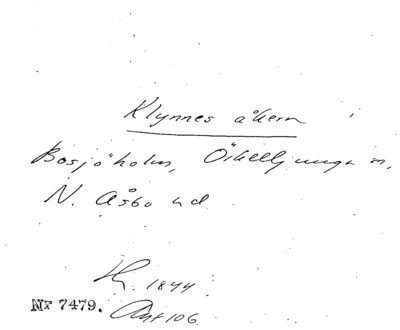 Klynnes åkern
Bosjöholm, Örkelljunga sn,
N. Åsbo hd
H. 1844
Nr 7479. Akt 106